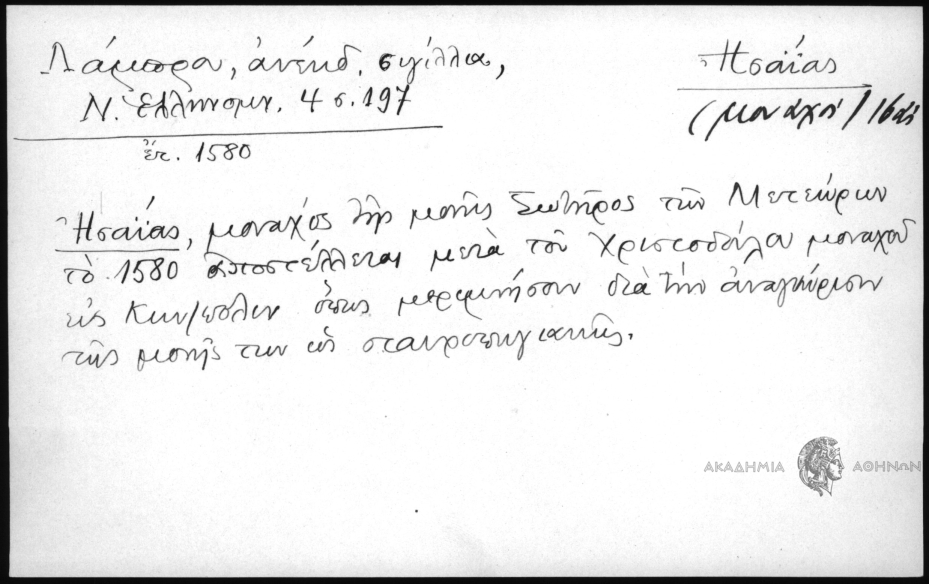 Λάμπρου, ἀνέκδ. σιγίλλια,
Ν. Ἑλληνομν. 4 σ. 197
ἔτ. 1580
Ἠσαΐας
(μοναχοί) 16 αἰ
Ἠσαΐας, μοναχός τῆς μονῆς Σωτῆρος τῶν Μετεώρων
τὸ 1580 ἀποστέλλεται μετὰ τοῦ Χριστοδούλου μοναχοῦ
εἰς Κων/πολιν ὅπως μεριμνήσουν διὰ τήν ἀναγνώρισιν
τῆς μονῆς των ὡς σταυροπηγιακῆς.
ΑΚΑΔΗΜΙΑ ΑΘΗΝΩΝ